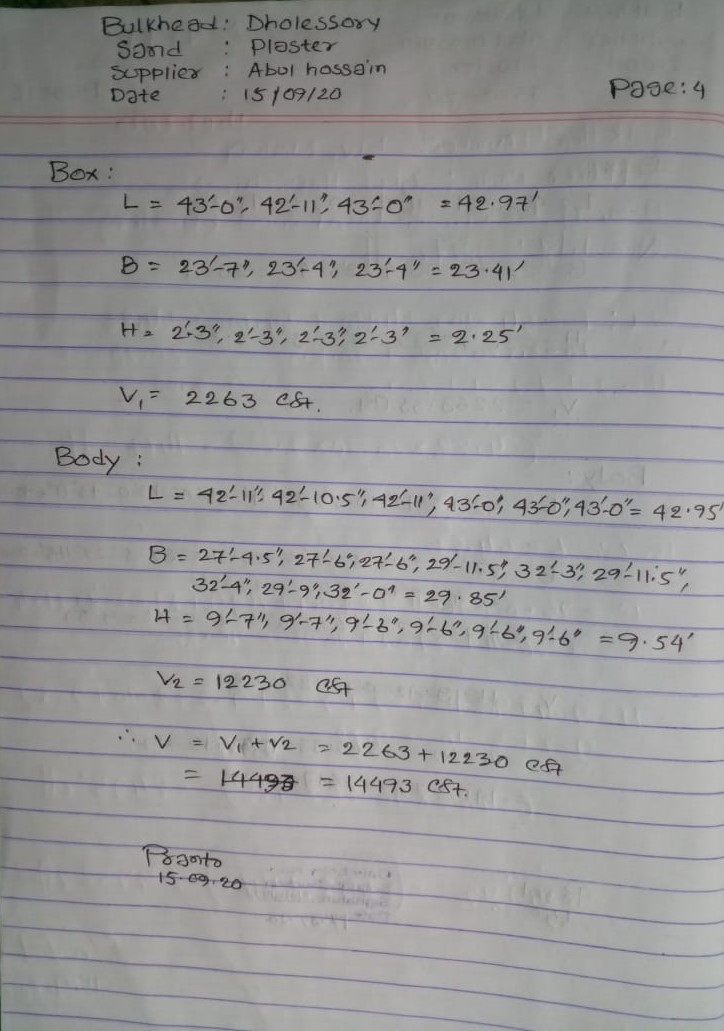 Bulkhead: Dholessory
Sand : Plaster
Supplier : Abul hossain
Date : 15/09/20
Page: 4
Box:
L = 43'-0", 42'-11", 43'-0" = 42.97'
B = 23'-7", 23'-4", 23'-4" = 23.41'
H = 2'-3", 2'-3", 2'-3", 2'-3" = 2.25'
V₁ = 2263 cft.
Body :
L = 42'-11", 42'-10.5", 42'-11", 43'-0", 43'-0", 43'-0" = 42.95'
B = 27'-4.5", 27'-6", 27'-6", 29'-11.5", 32'-3", 29'-11.5",
32'-4", 29'-9", 32'-0" = 29.85'
H = 9'-7", 9'-7", 9'-6", 9'-6", 9'-6", 9'-6" = 9.54'
V₂ = 12230 cft
∴ V = V₁ + V₂ = 2263 + 12230 cft
= 14493 = 14493 cft.
Pranto
15.09.20